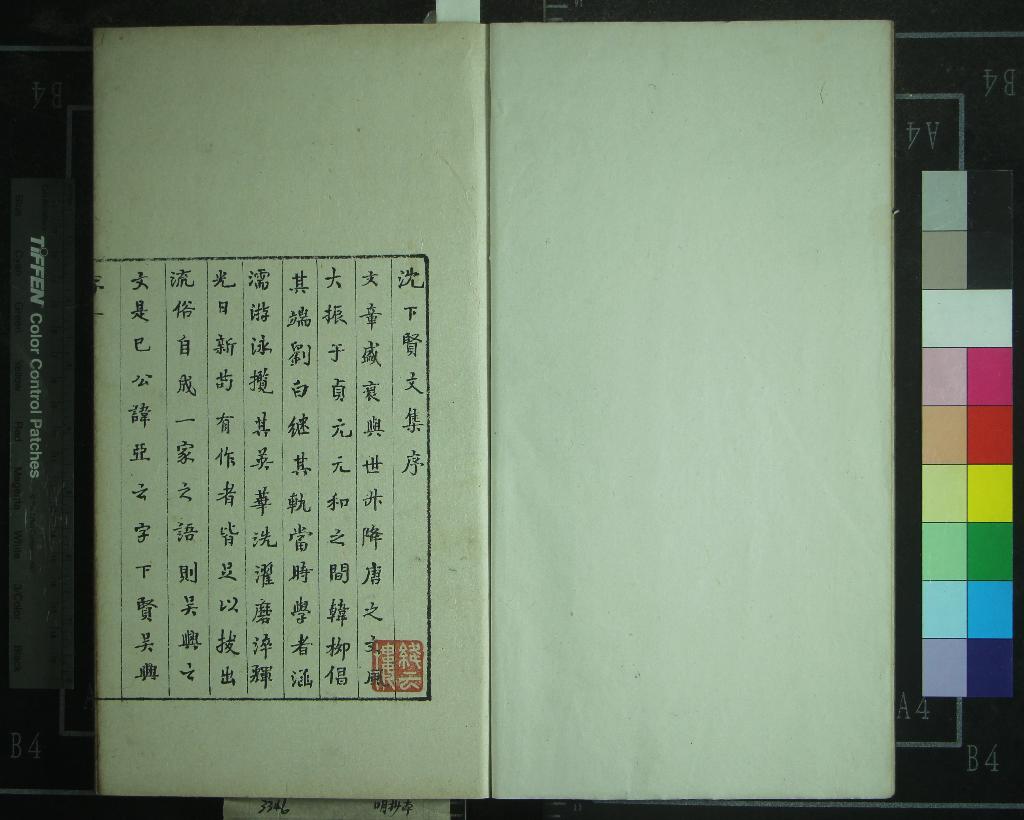 沈下賢文集序
文章盛衰與世升降唐之文風
大振于貞元元和之間韓柳倡
其端劉白継其軌當時學者涵
濡游泳攬其英華洗濯磨淬輝
光日新苟有作者皆足以拔出
流俗自成一家之語則吴興之
文是已公諱亞之字下賢吴興
序一
TIFFEN Color Control Patches
B4
A4
B4
B4
A4
B4
3346
明抄本